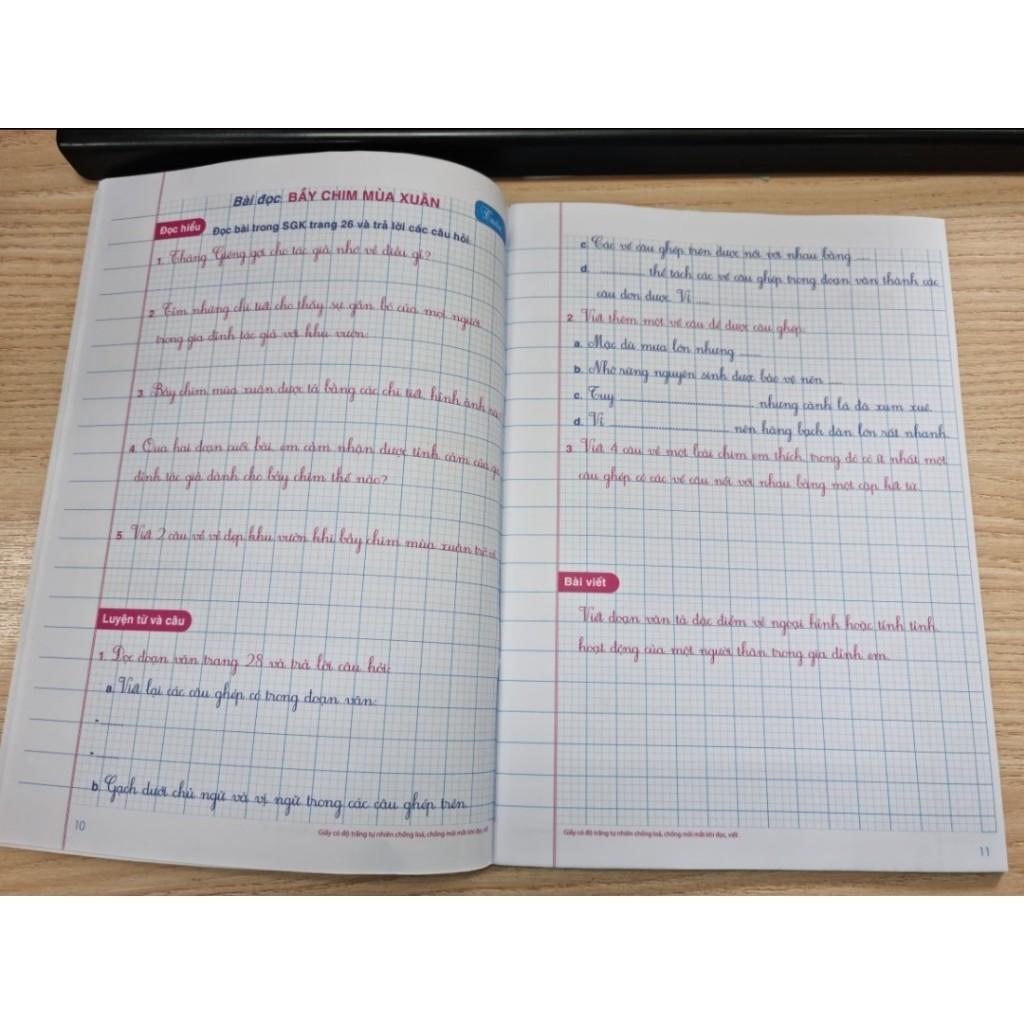 Bài đọc BẦY CHIM MÙA XUÂN
Đọc hiểu
Đọc bài trong SGK trang 26 và trả lời các câu hỏi.
1. Tháng Giêng gợi cho tác giả nhớ về điều gì?
2. Tìm những chi tiết cho thấy sự gắn bó của mọi người
trong gia đình tác giả với khu vườn.
3. Bầy chim mùa xuân được tả bằng các chi tiết, hình ảnh
4. Qua hai đoạn cuối bài, em cảm nhận được tình cảm của
đình tác giả dành cho bầy chim thế nào?
5. Viết 2 câu về vẻ đẹp khu vườn khi bầy chim mùa xuân
Luyện từ và câu
1. Đọc đoạn văn trang 28 và trả lời câu hỏi:
a. Viết lại các câu ghép có trong đoạn văn:
- ......
- ......
b. Gạch dưới chủ ngữ và vị ngữ trong các câu ghép trên.
10
Giấy có độ trắng tự nhiên chống loá, chống mỏi mắt khi đọc, viết
c. Các vế câu ghép trên được nối với nhau bằng ....
d. .............. thể tách các vế câu ghép trong đoạn văn thành các
câu đơn được. Vì ....
2. Viết thêm một vế câu để được câu ghép:
a. Mặc dù mưa lớn nhưng ......
b. Nhờ rừng nguyên sinh được bảo vệ nên ....
c. Tuy .............................. nhưng cành lá đã xum xuê.
d. Vì .............................. nên hàng bạch đàn lớn rất nhanh.
3. Viết 4 câu về một loài chim em thích, trong đó có ít nhất một
câu ghép có các vế câu nối với nhau bằng một cặp kết từ.
Bài viết
Viết đoạn văn tả đặc điểm về ngoại hình hoặc tính tình,
hoạt động của một người thân trong gia đình em.
Giấy có độ trắng tự nhiên chống loá, chống mỏi mắt khi đọc, viết
11